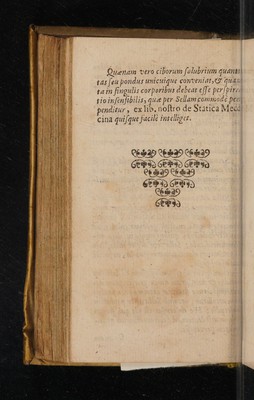 Quænam vero ciborum salubrium quanti
tas seu pondus unicuique conveniat, & quan
ta in singulis corporibus debeat esse perspira
tio insensibilis, quæ per Sellam commode per
penditur, ex lib. nostro de Statica Medi
cina quisque facilè intelliget.